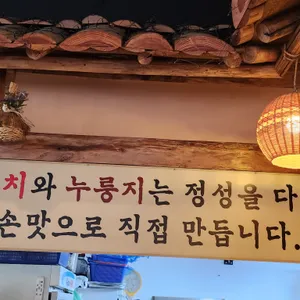 치와 누룽지는 정성을 다
손맛으로 직접 만듭니다.